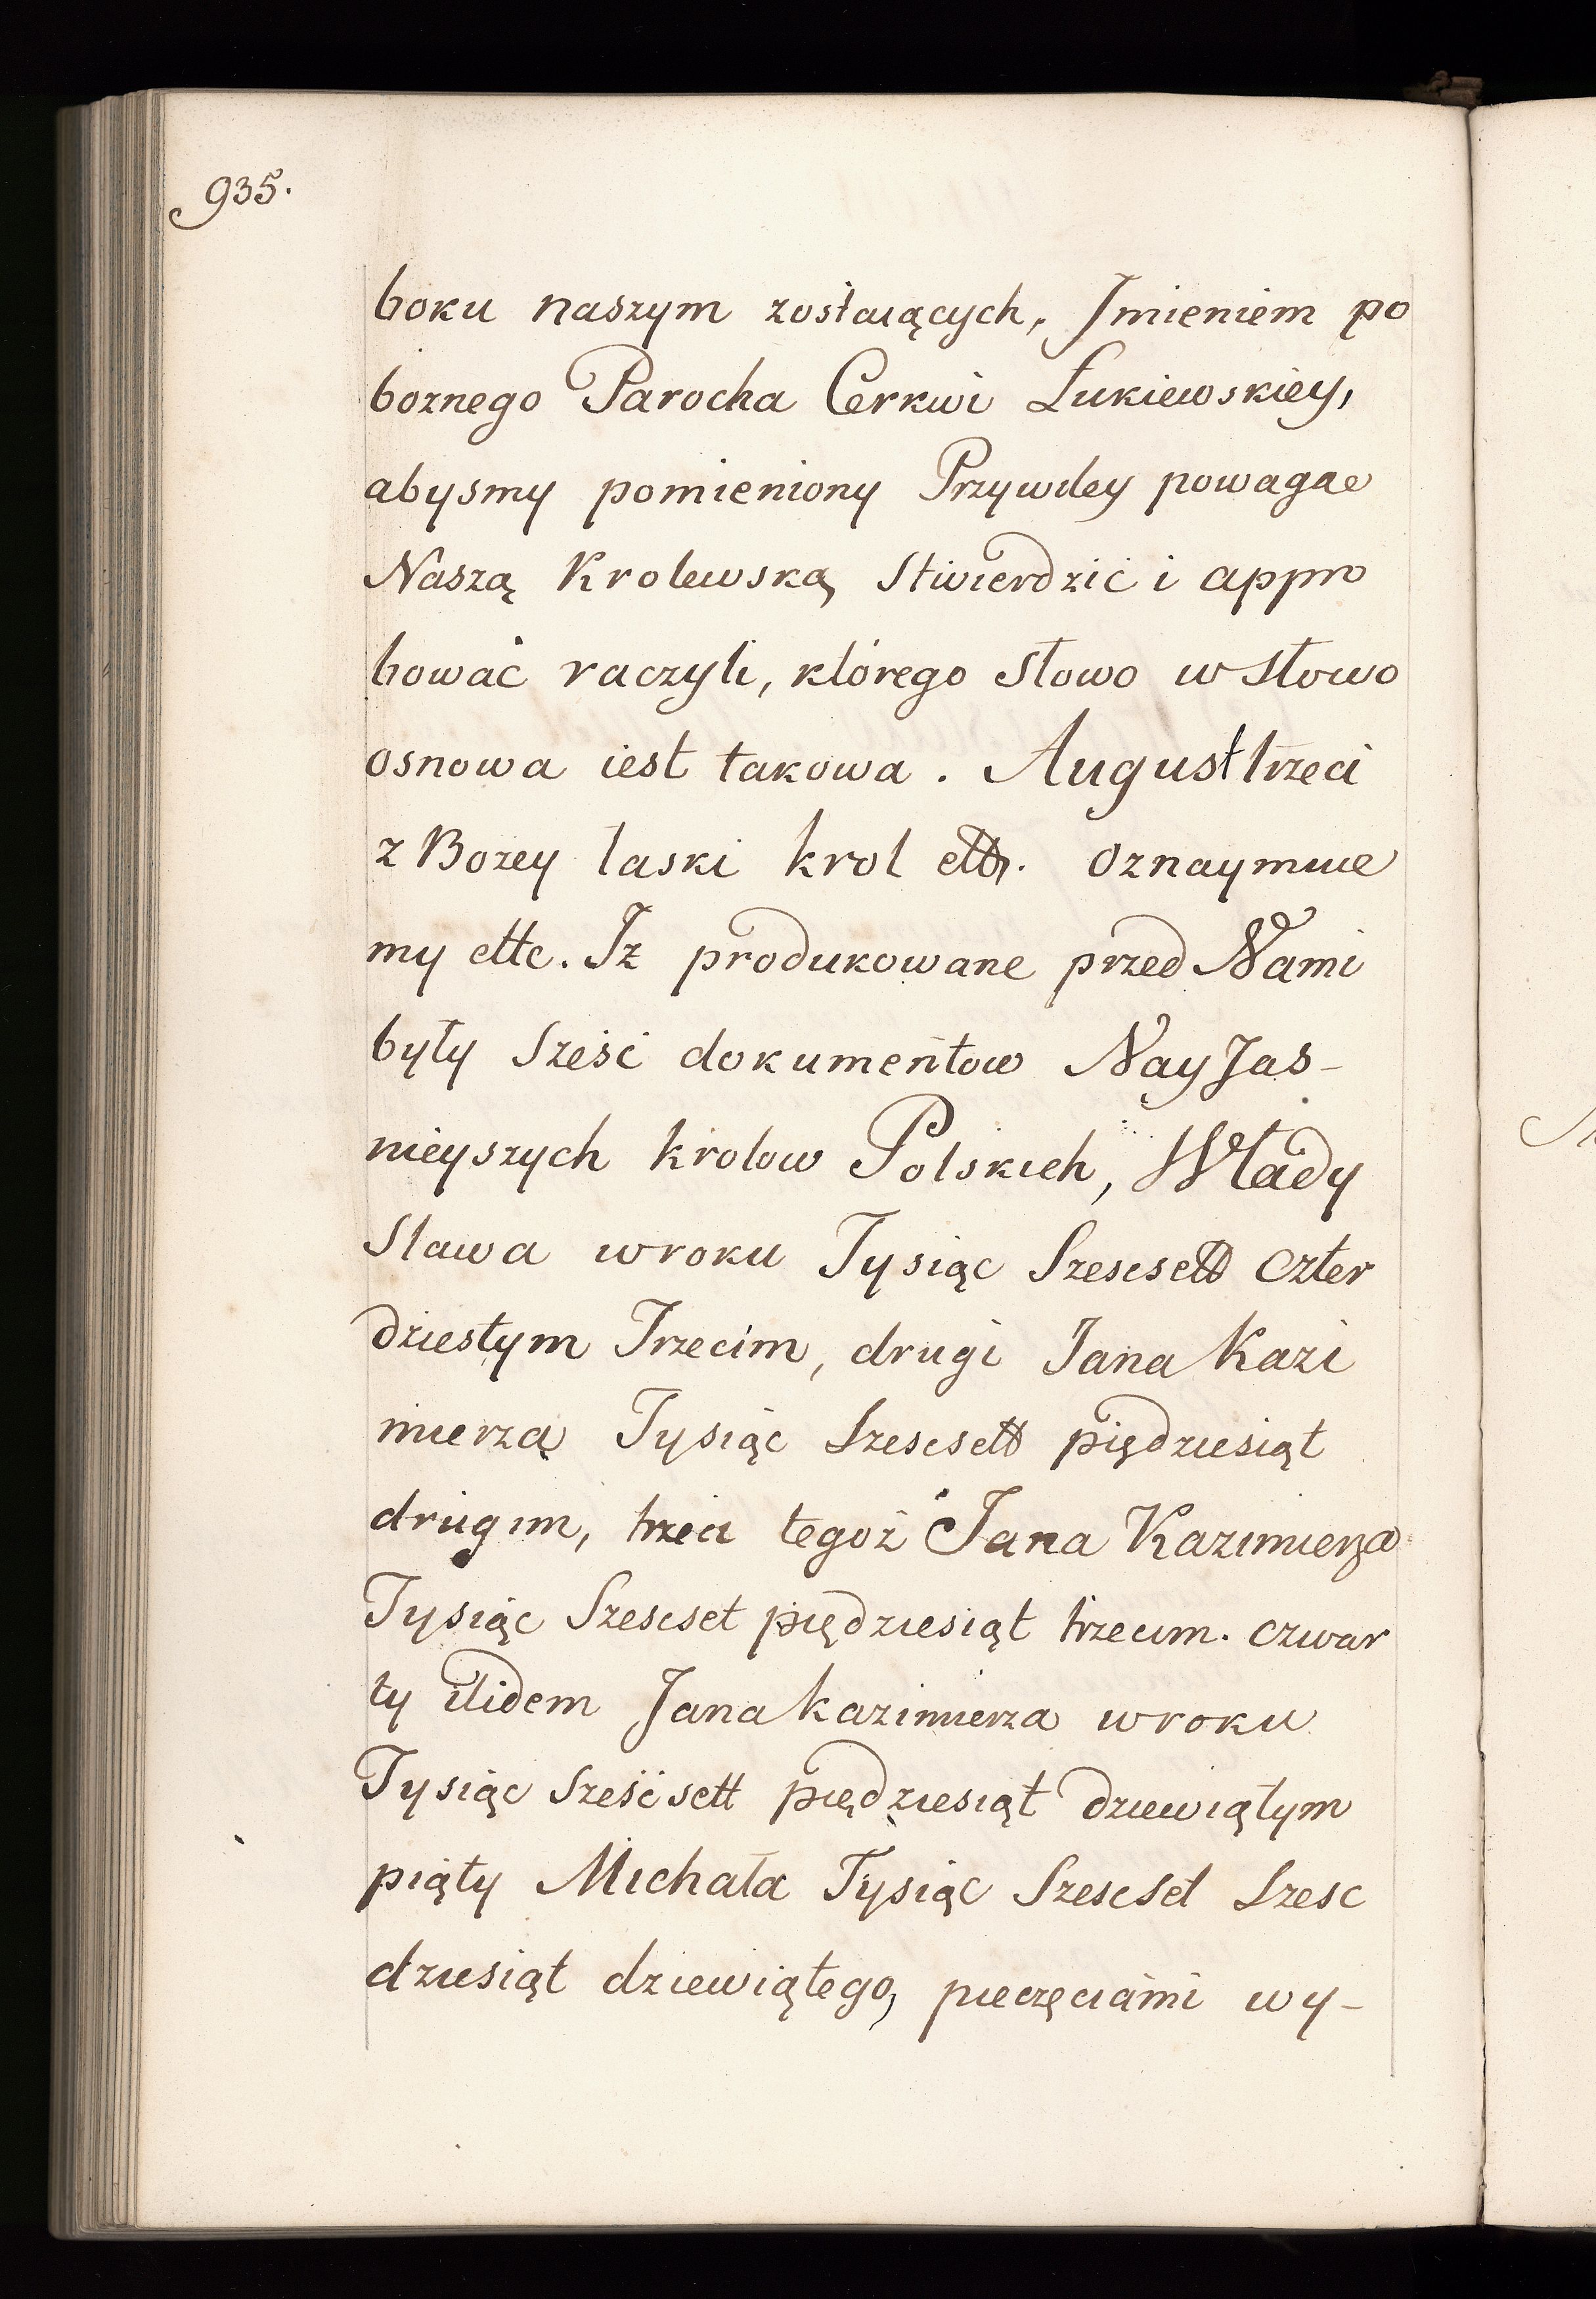 935.
boku naszym zostaiących, Imieniem po
boznego Parocha Cerkwi Łukiewskiey,
abysmy pomieniony Przywiley powagae
Naszą Krolewską Stwierdzić i appro
bować raczyli, którego słowo w słowo
osnowa iest takowa. August trzeci
z Bozey laski krol ettc. Oznaymuie
my ettc. Iz produkowane przed Nami
były sześć dokumentow Nay Jas-
nieyszych królow Polskich, Włady
Slawa w roku Tysiąc Szescsett czter
dziestym Trzecim, drugi Jana Kazi
mierza Tysiąc Szescsett piędziesiąt
drugim, trzeci tegoż Jana Kazimierza
Tysiąc Szescset piędziesiąt trzecim. czwar
ty itidem Jana kazimierza w roku
Tysiąc Sześćsett piędziesiąt dziewiątym
piąty Michała Tysiąc Szescset Szesc
dziesiąt dziewiątego, pieczęciami wy-